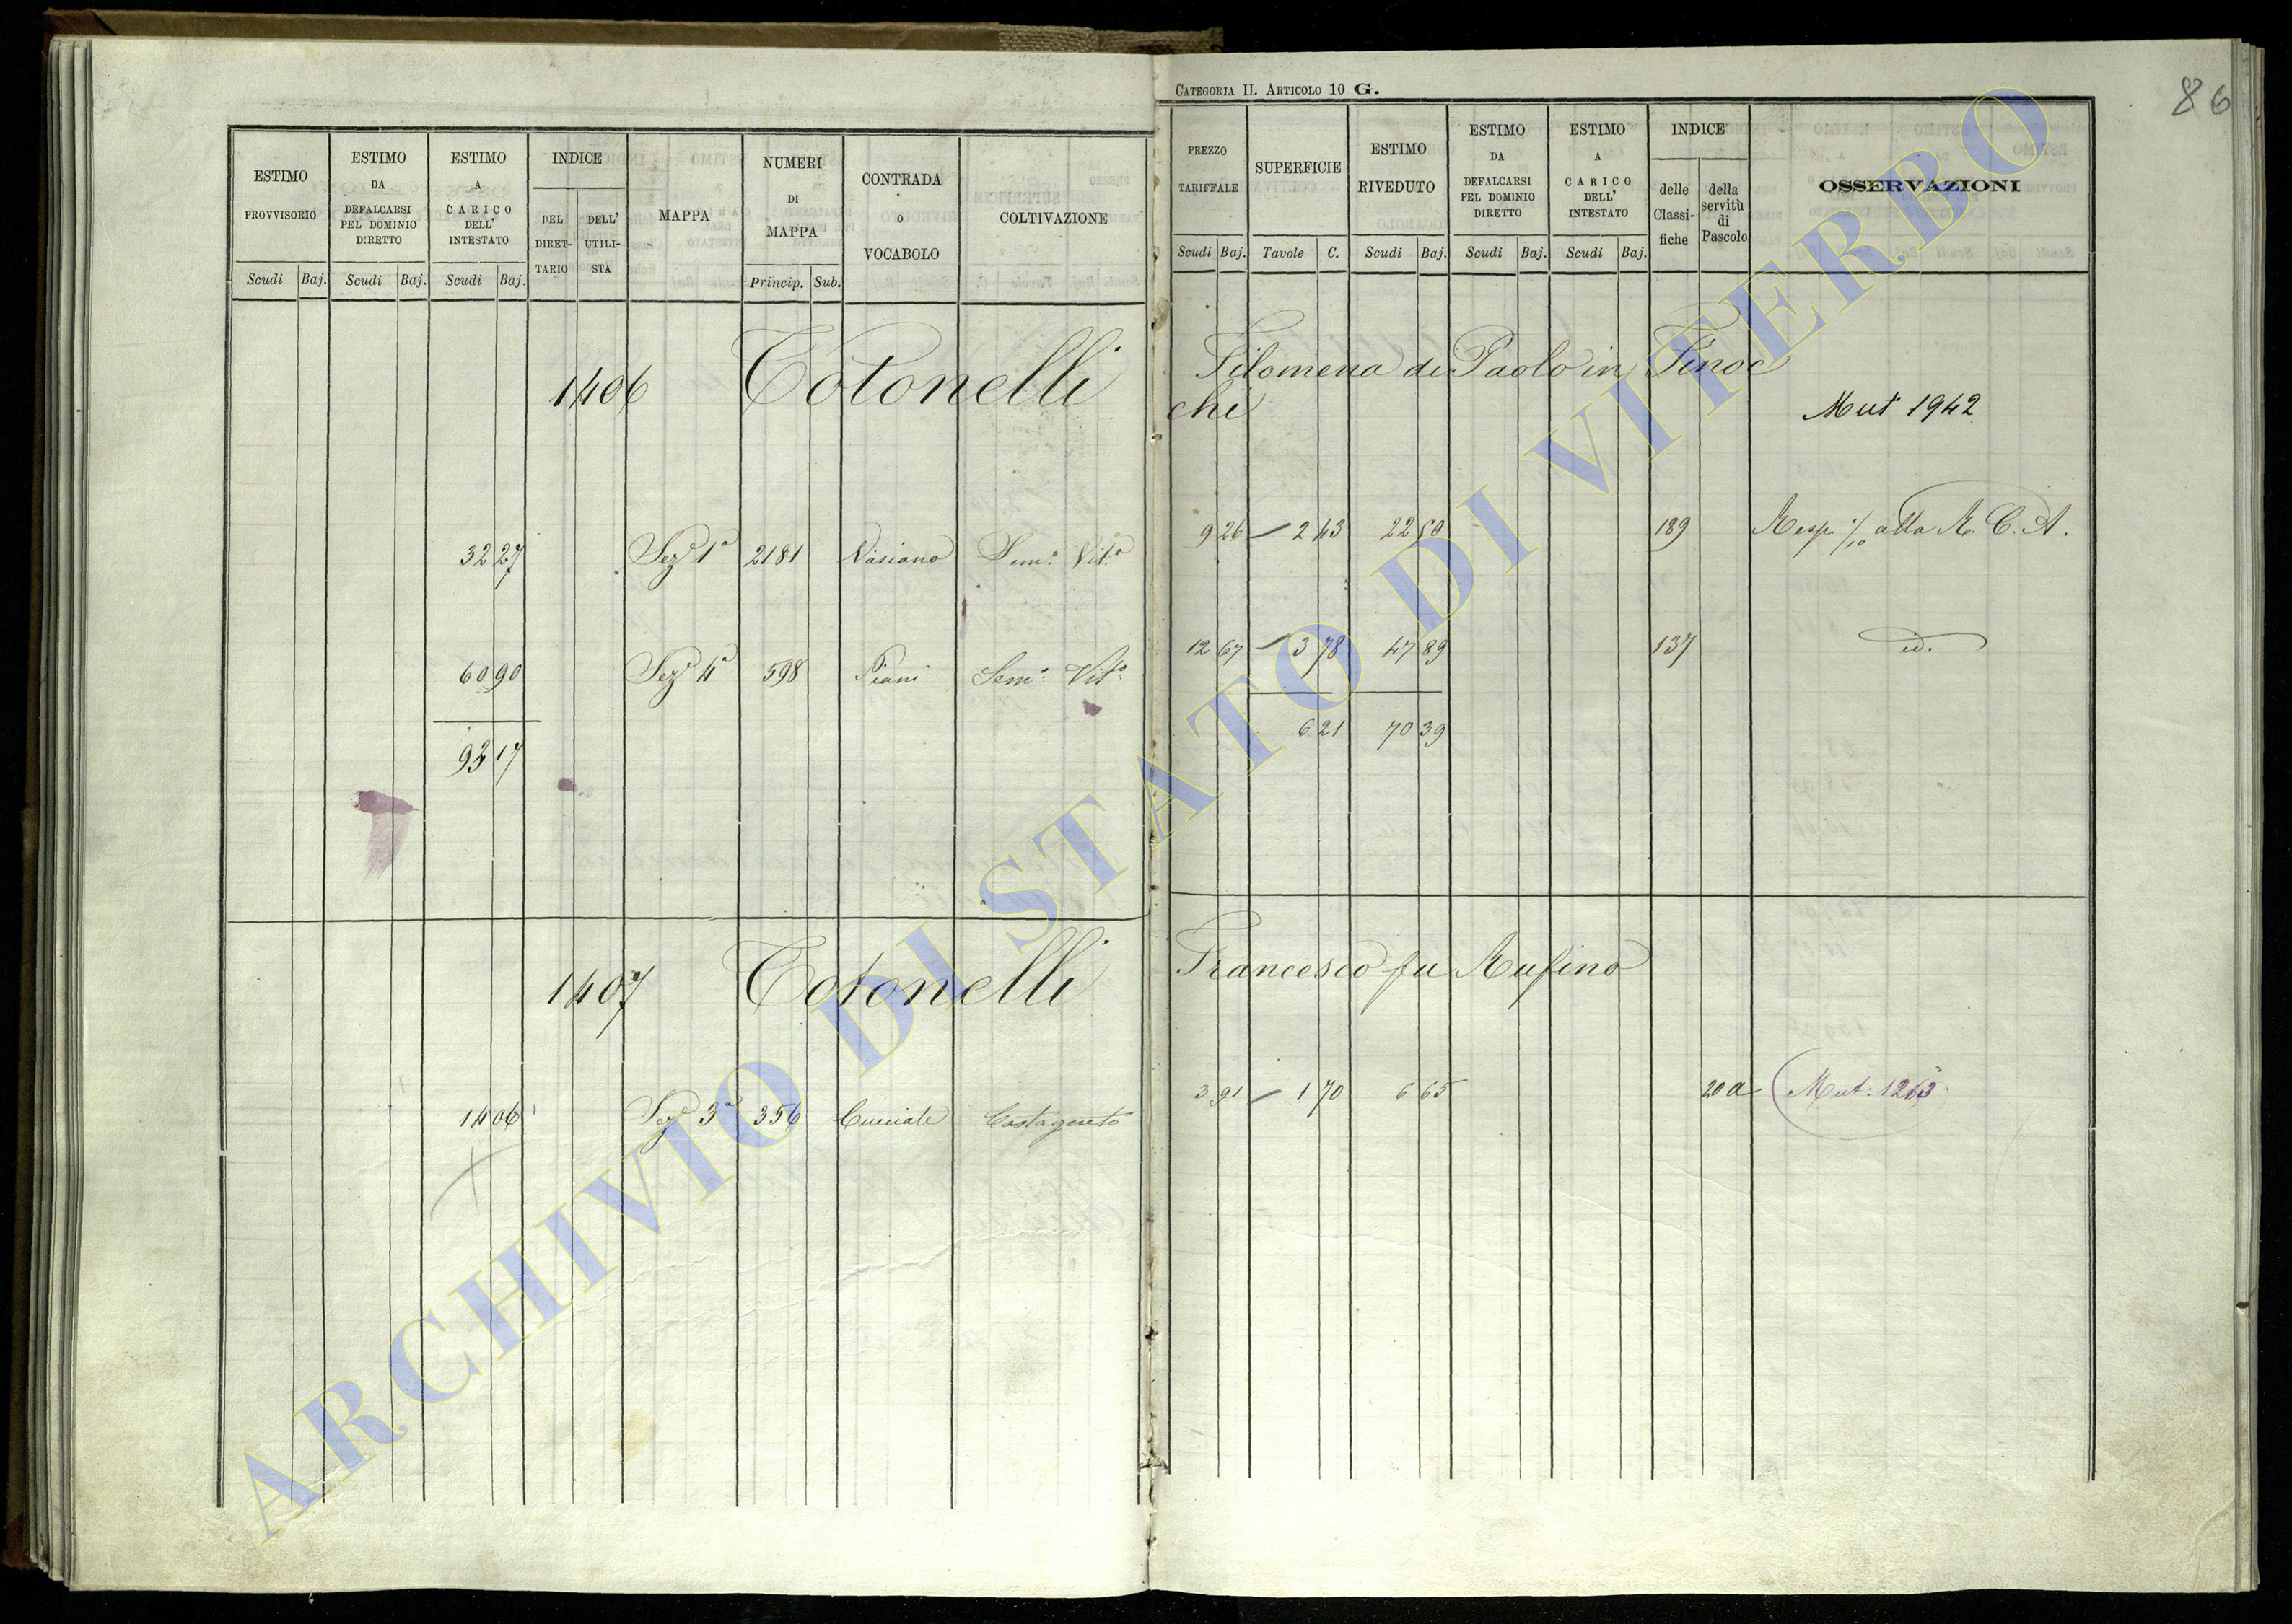 CATEGORIA II. ARTICOLO 10 G.
86
ESTIMO PROVVISORIO Scudi Baj.
ESTIMO DA DEFALCARSI PEL DOMINIO DIRETTO Scudi Baj.
ESTIMO A CARICO DELL' INTESTATO Scudi Baj.
INDICE DEL DIRETTARIO DELL' UTILISTA
MAPPA
NUMERI DI MAPPA Princip. Sub.
CONTRADA o VOCABOLO
COLTIVAZIONE
PREZZO TARIFFALE Scudi Baj.
SUPERFICIE Tavole C.
ESTIMO RIVEDUTO Scudi Baj.
ESTIMO DA DEFALCARSI PEL DOMINIO DIRETTO Scudi Baj.
ESTIMO A CARICO DELL' INTESTATO Scudi Baj.
INDICE delle Classifiche della servitù di Pascolo
OSSERVAZIONI
1406 Totonelli Filomena di Paolo in Finoc
chi Mut 1942
32 27 Sez.e 1a 2181 Vasiano Sem.o Vit.o 9 26 2 43 22 50 189 Resp. alla R. C. A.
60 90 Sez.e 4a 598 Piani Sem.o Vit.o 12 67 3 78 47 89 137 id.
93 17 6 21 70 39
1407 Totonelli Francesco fu Rufino
14 06 Sez.e 3a 356 Cucciale Castagneto 3 91 1 70 6 65 20 a Mut: 1263
ARCHIVIO DI STATO DI VITERBO